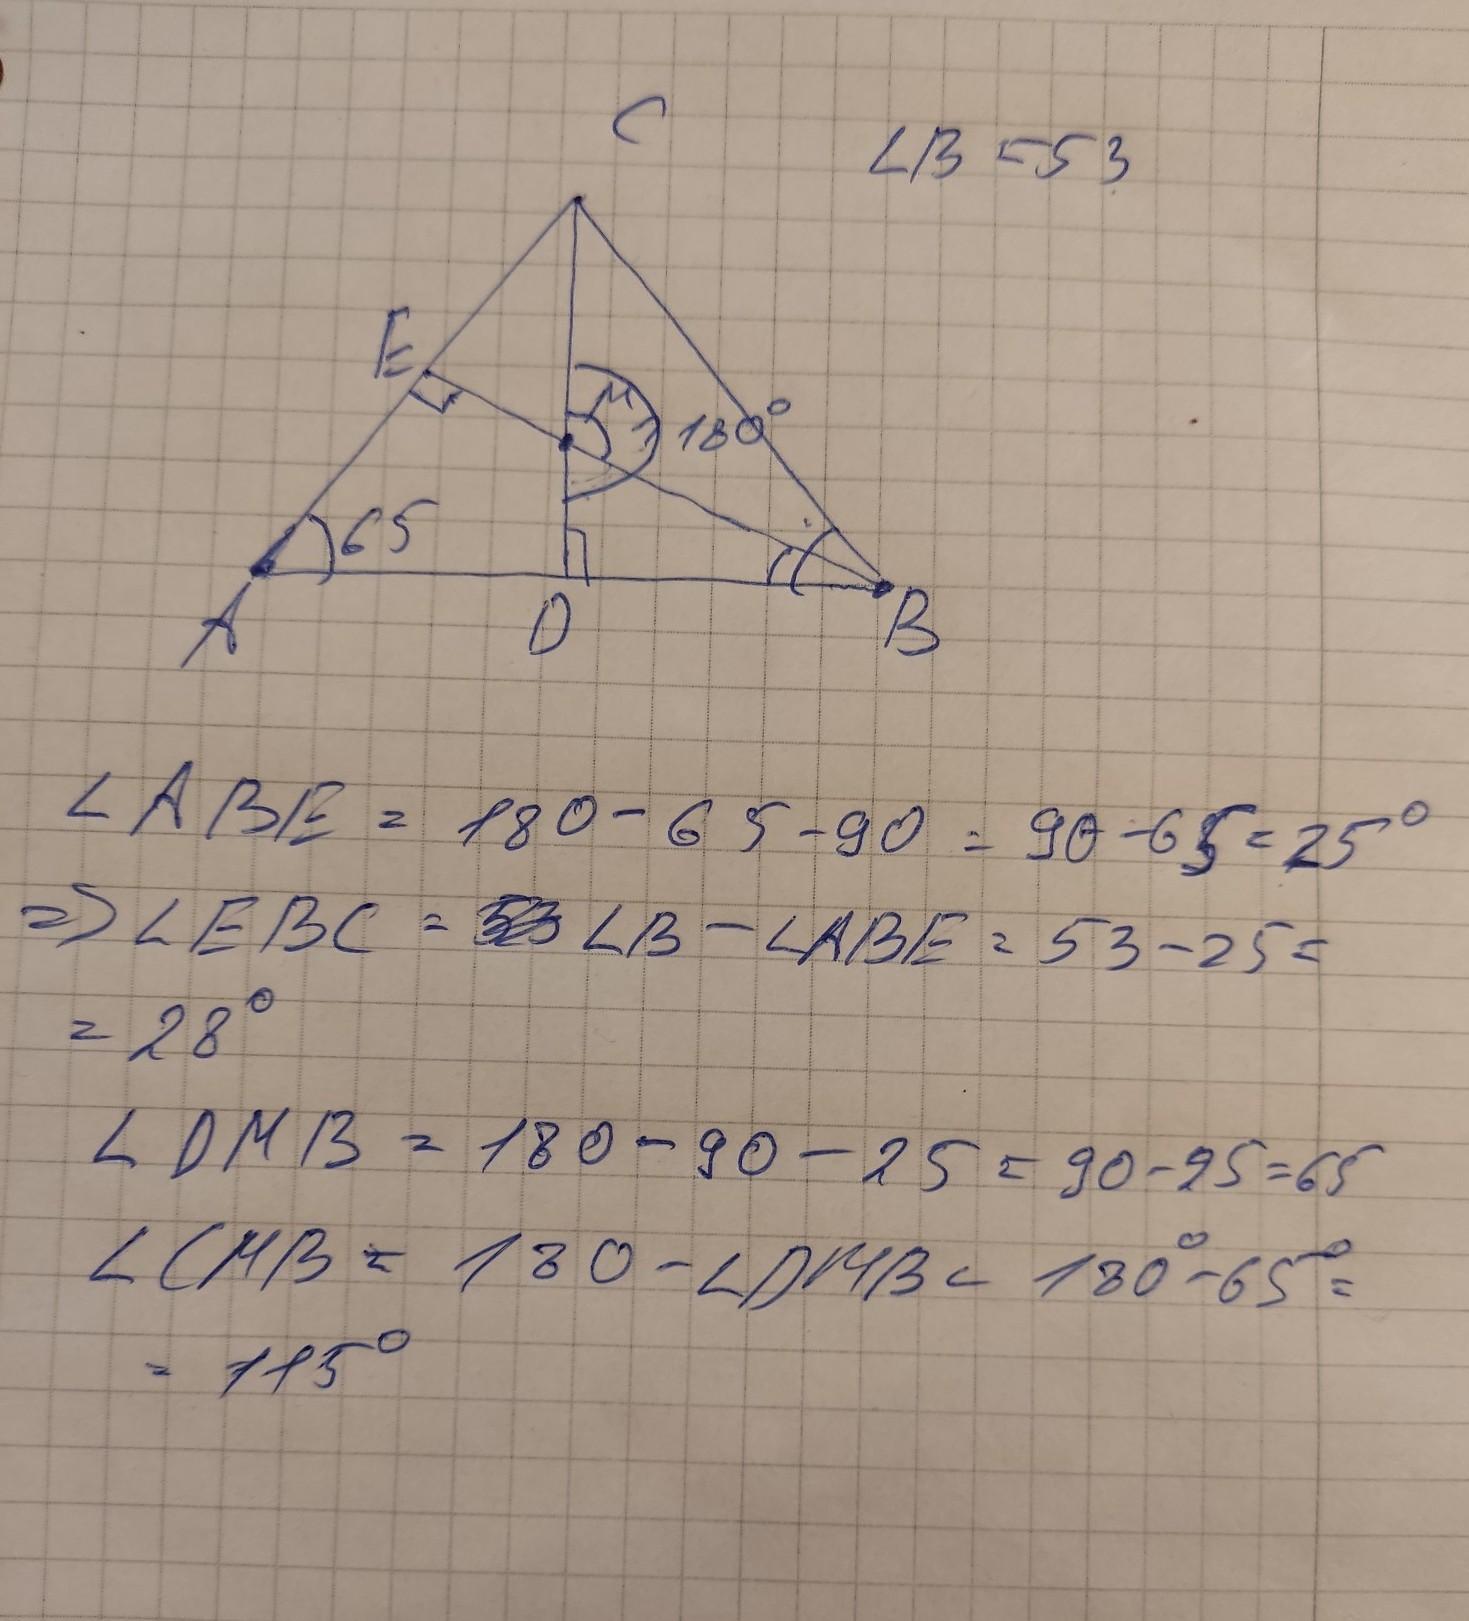 C
∠B = 53
E
M
180°
65
A
D
B
∠ABE = 180 - 65 - 90 = 90 - 65 = 25°
=> ∠EBC = ∠B - ∠ABE = 53 - 25 =
= 28°
∠DMB = 180 - 90 - 25 = 90 - 25 = 65
∠CMB = 180 - ∠DMB = 180° - 65° =
= 115°